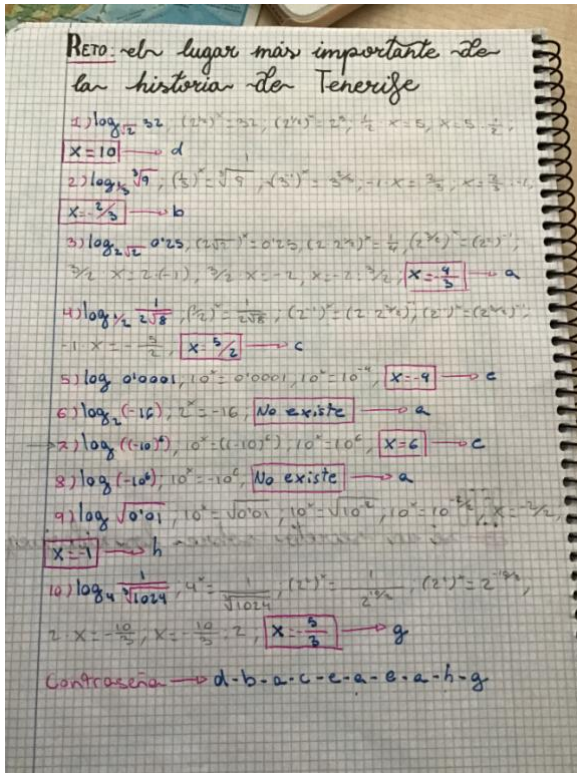 RETO: el lugar más importante de
la historia de Tenerife
1) log_√2 32, (2^½)^x = 32, (2^½)^x = 2^5; ½ · x = 5, x = 5 · ½,
x = 10 → d
2) log_⅓ ∛9, (⅓)^x = ∛9, (3^-1)^x = 3^⅔, -1 · x = ⅔, x = ⅔ · -1,
x = -2/3 → b
3) log_2√2 0'25, (2√2)^x = 0'25, (2 · 2^½)^x = ¼, (2^3/2)^x = (2²)^-1;
3/2 · x = 2·(-1), 3/2 · x = -2, x = -2 · 3/2, x = -4/3 → a
4) log_½ 1/2√8, (½)^x = 1/2√8, (2^-1)^x = (2 · 2^3/2)^-1, (2^-1)^x = (2^5/2)^-1;
-1 · x = -5/2, x = 5/2 → c
5) log 0'0001, 10^x = 0'0001, 10^x = 10^-4, x = -4 → e
6) log_2 (-16), 2^x = -16, No existe → a
→ 7) log ((-10)^6), 10^x = ((-10)^6), 10^x = 10^6, x = 6 → e
8) log (-10^6), 10^x = -10^6, No existe → a
9) log √0'01, 10^x = √0'01, 10^x = √10^-2, 10^x = 10^-2/2, x = -2/2,
x = -1 → h
10) log_4 1/∛1024, 4^x = 1/∛1024, (2²)^x = 1/2^10/3, (2²)^x = 2^-10/3,
2 · x = -10/3, x = 10/3 · 2, x = -5/3 → g
Contraseña → d-b-a-c-e-a-e-a-h-g